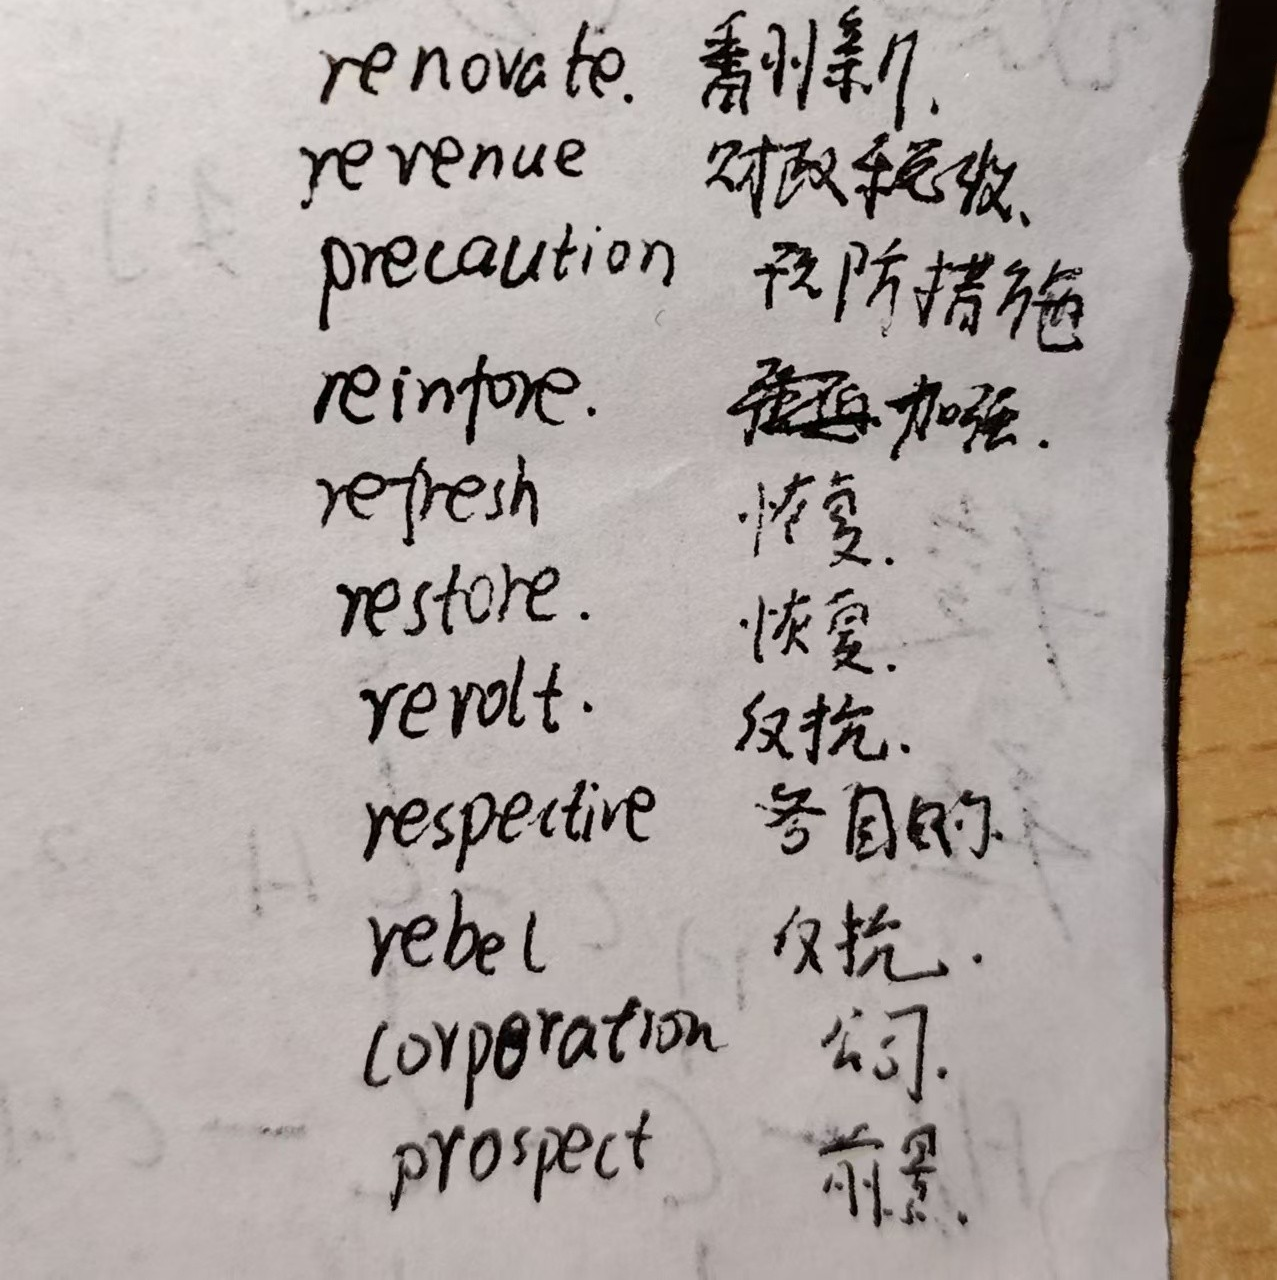 renovate. 翻新.
revenue 财政税收.
precaution 预防措施
reinfore. 加强.
refresh 恢复.
restore. 恢复.
revolt. 反抗.
respective 各自的.
rebel 反抗.
corporation 公司.
prospect 前景.